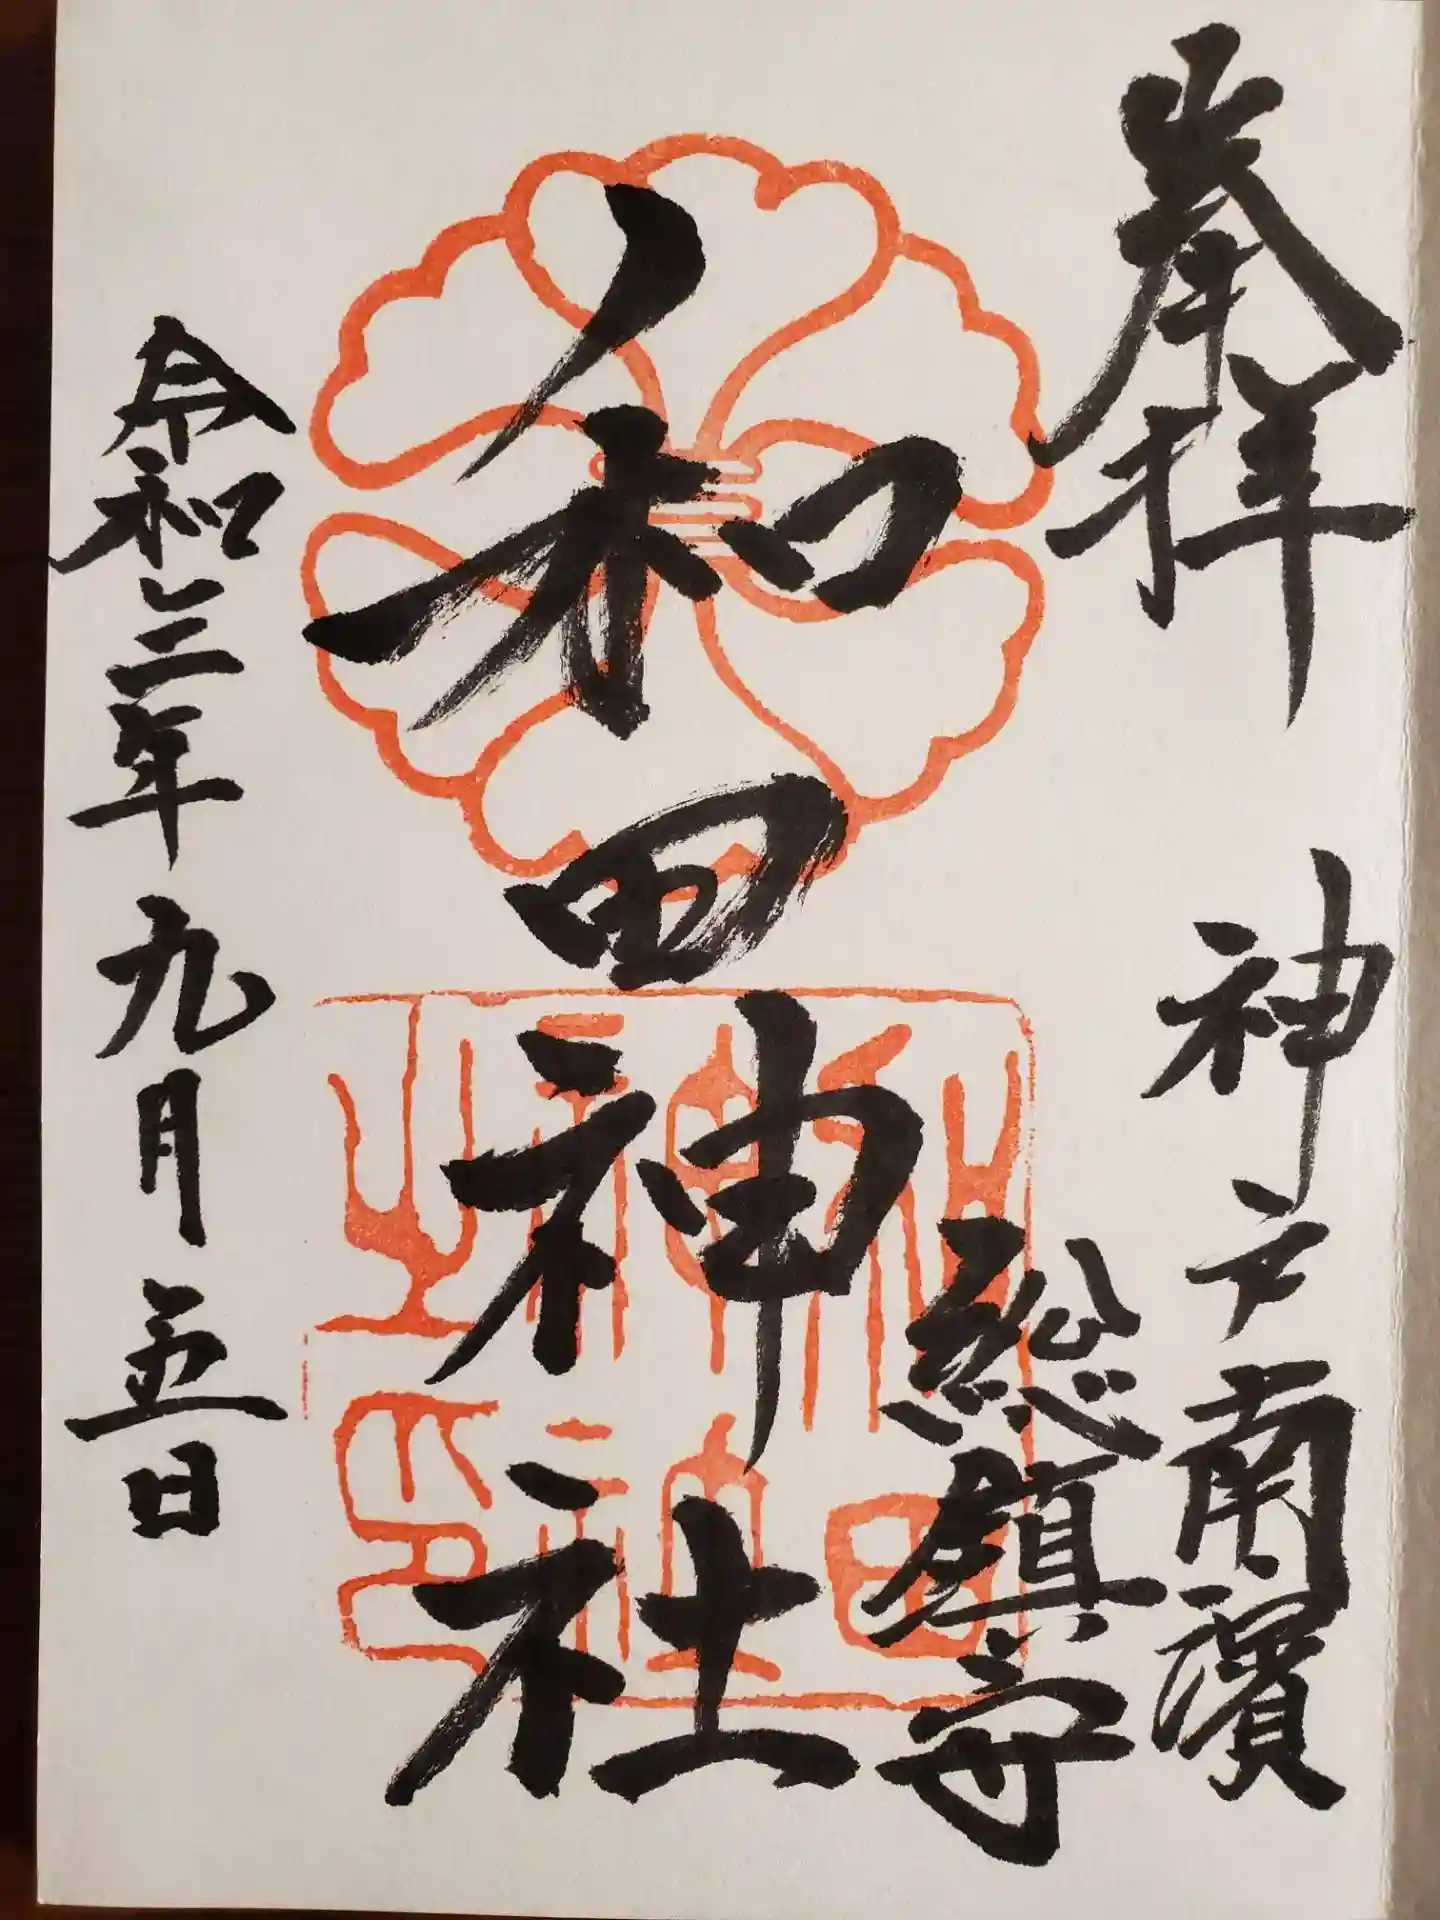 奉拝
神戸南濱
総鎮守
和田神社
和田神社之印
令和三年九月五日